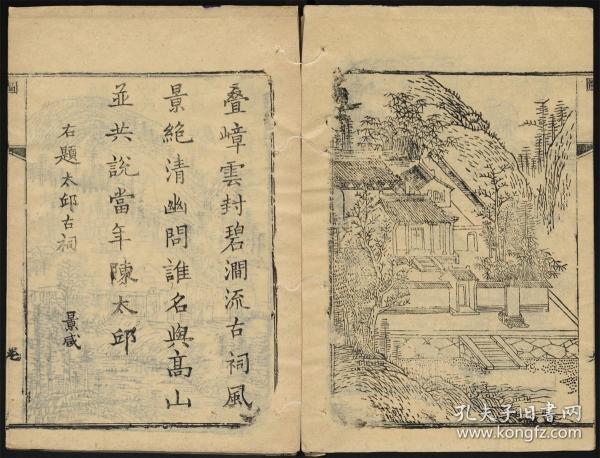 疊嶂雲封碧澗流古祠風
景絶清幽問誰名與高山
並共説當年陳太邱
右題太邱古祠
景咸
圖
卷
孔夫子旧书网
www.kongfz.com